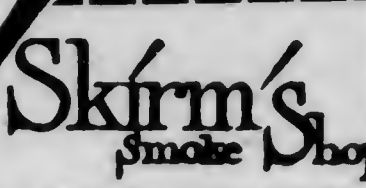 Skirm's
Smoke Shop